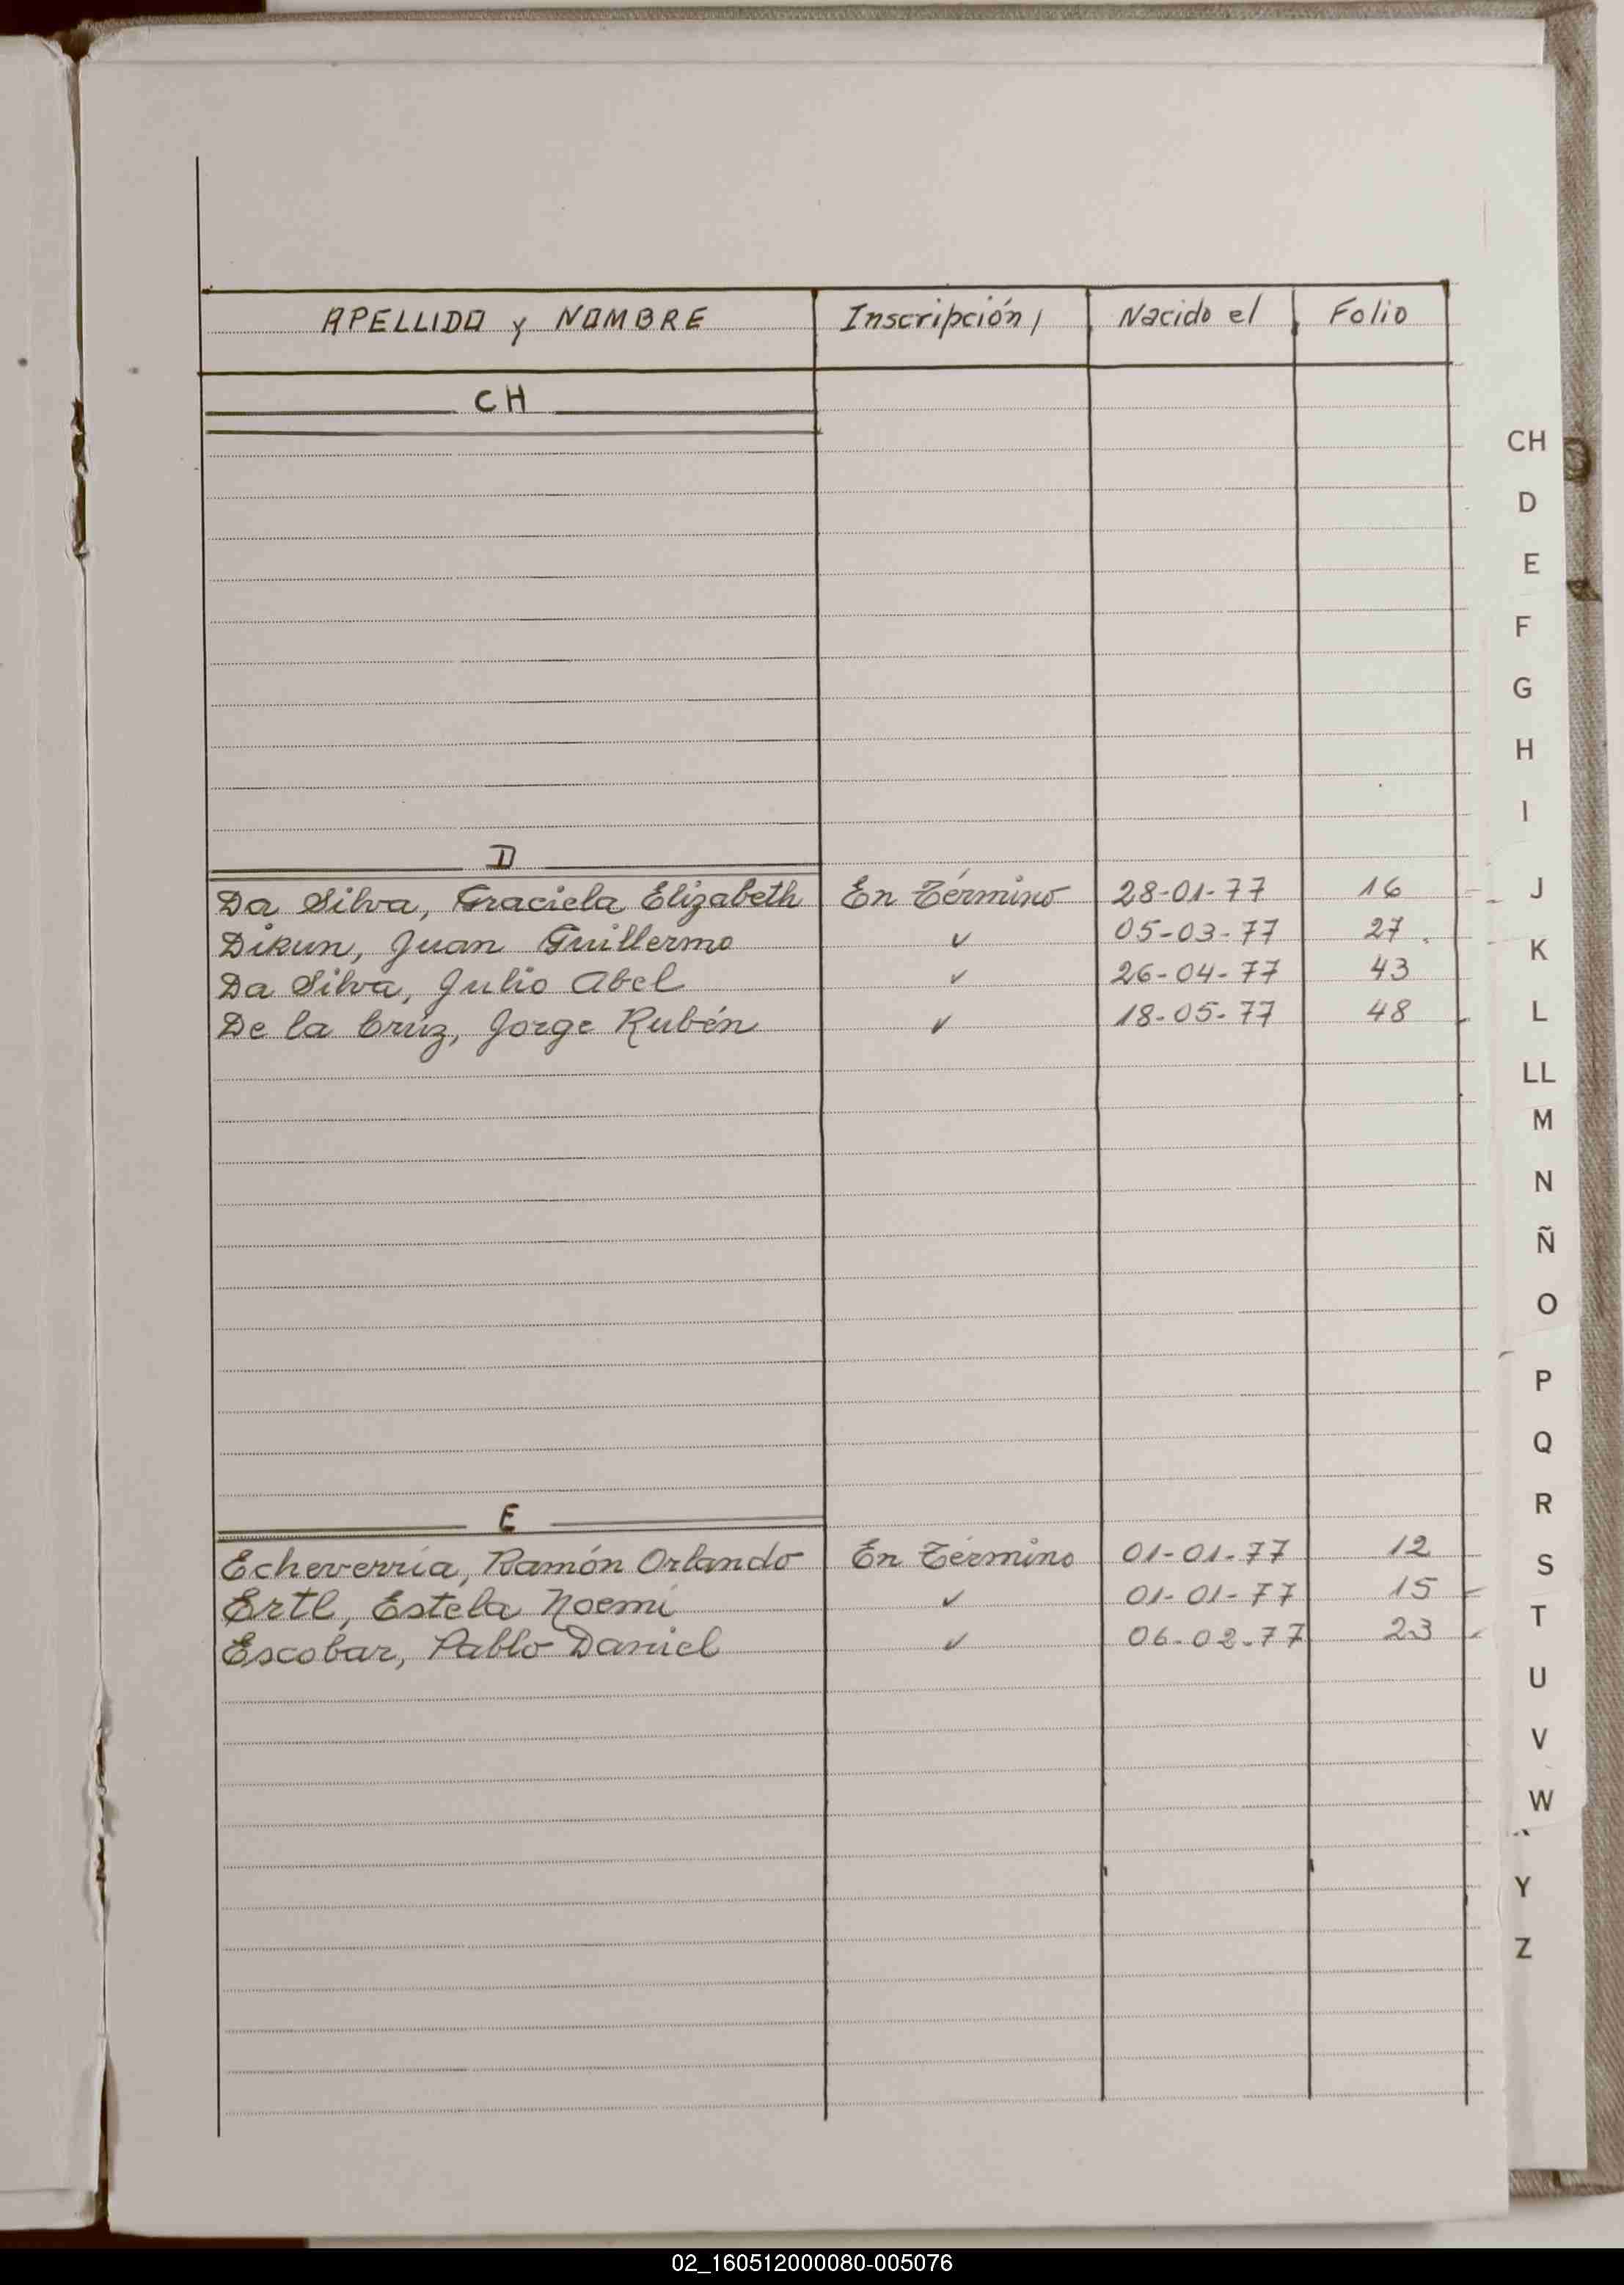 APELLIDO y NOMBRE Inscripción Nacido el Folio
CH
D
Da Silva, Graciela Elizabeth En Término 28-01-77 16
Dikun, Juan Guillermo ✓ 05-03-77 27
Da Silva, Julio Abel ✓ 26-04-77 43
De la Cruz, Jorge Rubén ✓ 18-05-77 48
E
Echeverría, Ramón Orlando En Término 01-01-77 12
Ertl, Estela Noemí ✓ 01-01-77 15
Escobar, Pablo Daniel ✓ 06-02-77 23
CH
D
E
F
G
H
I
J
K
L
LL
M
N
Ñ
O
P
Q
R
S
T
U
V
W
Y
Z
02_160512000080-005076